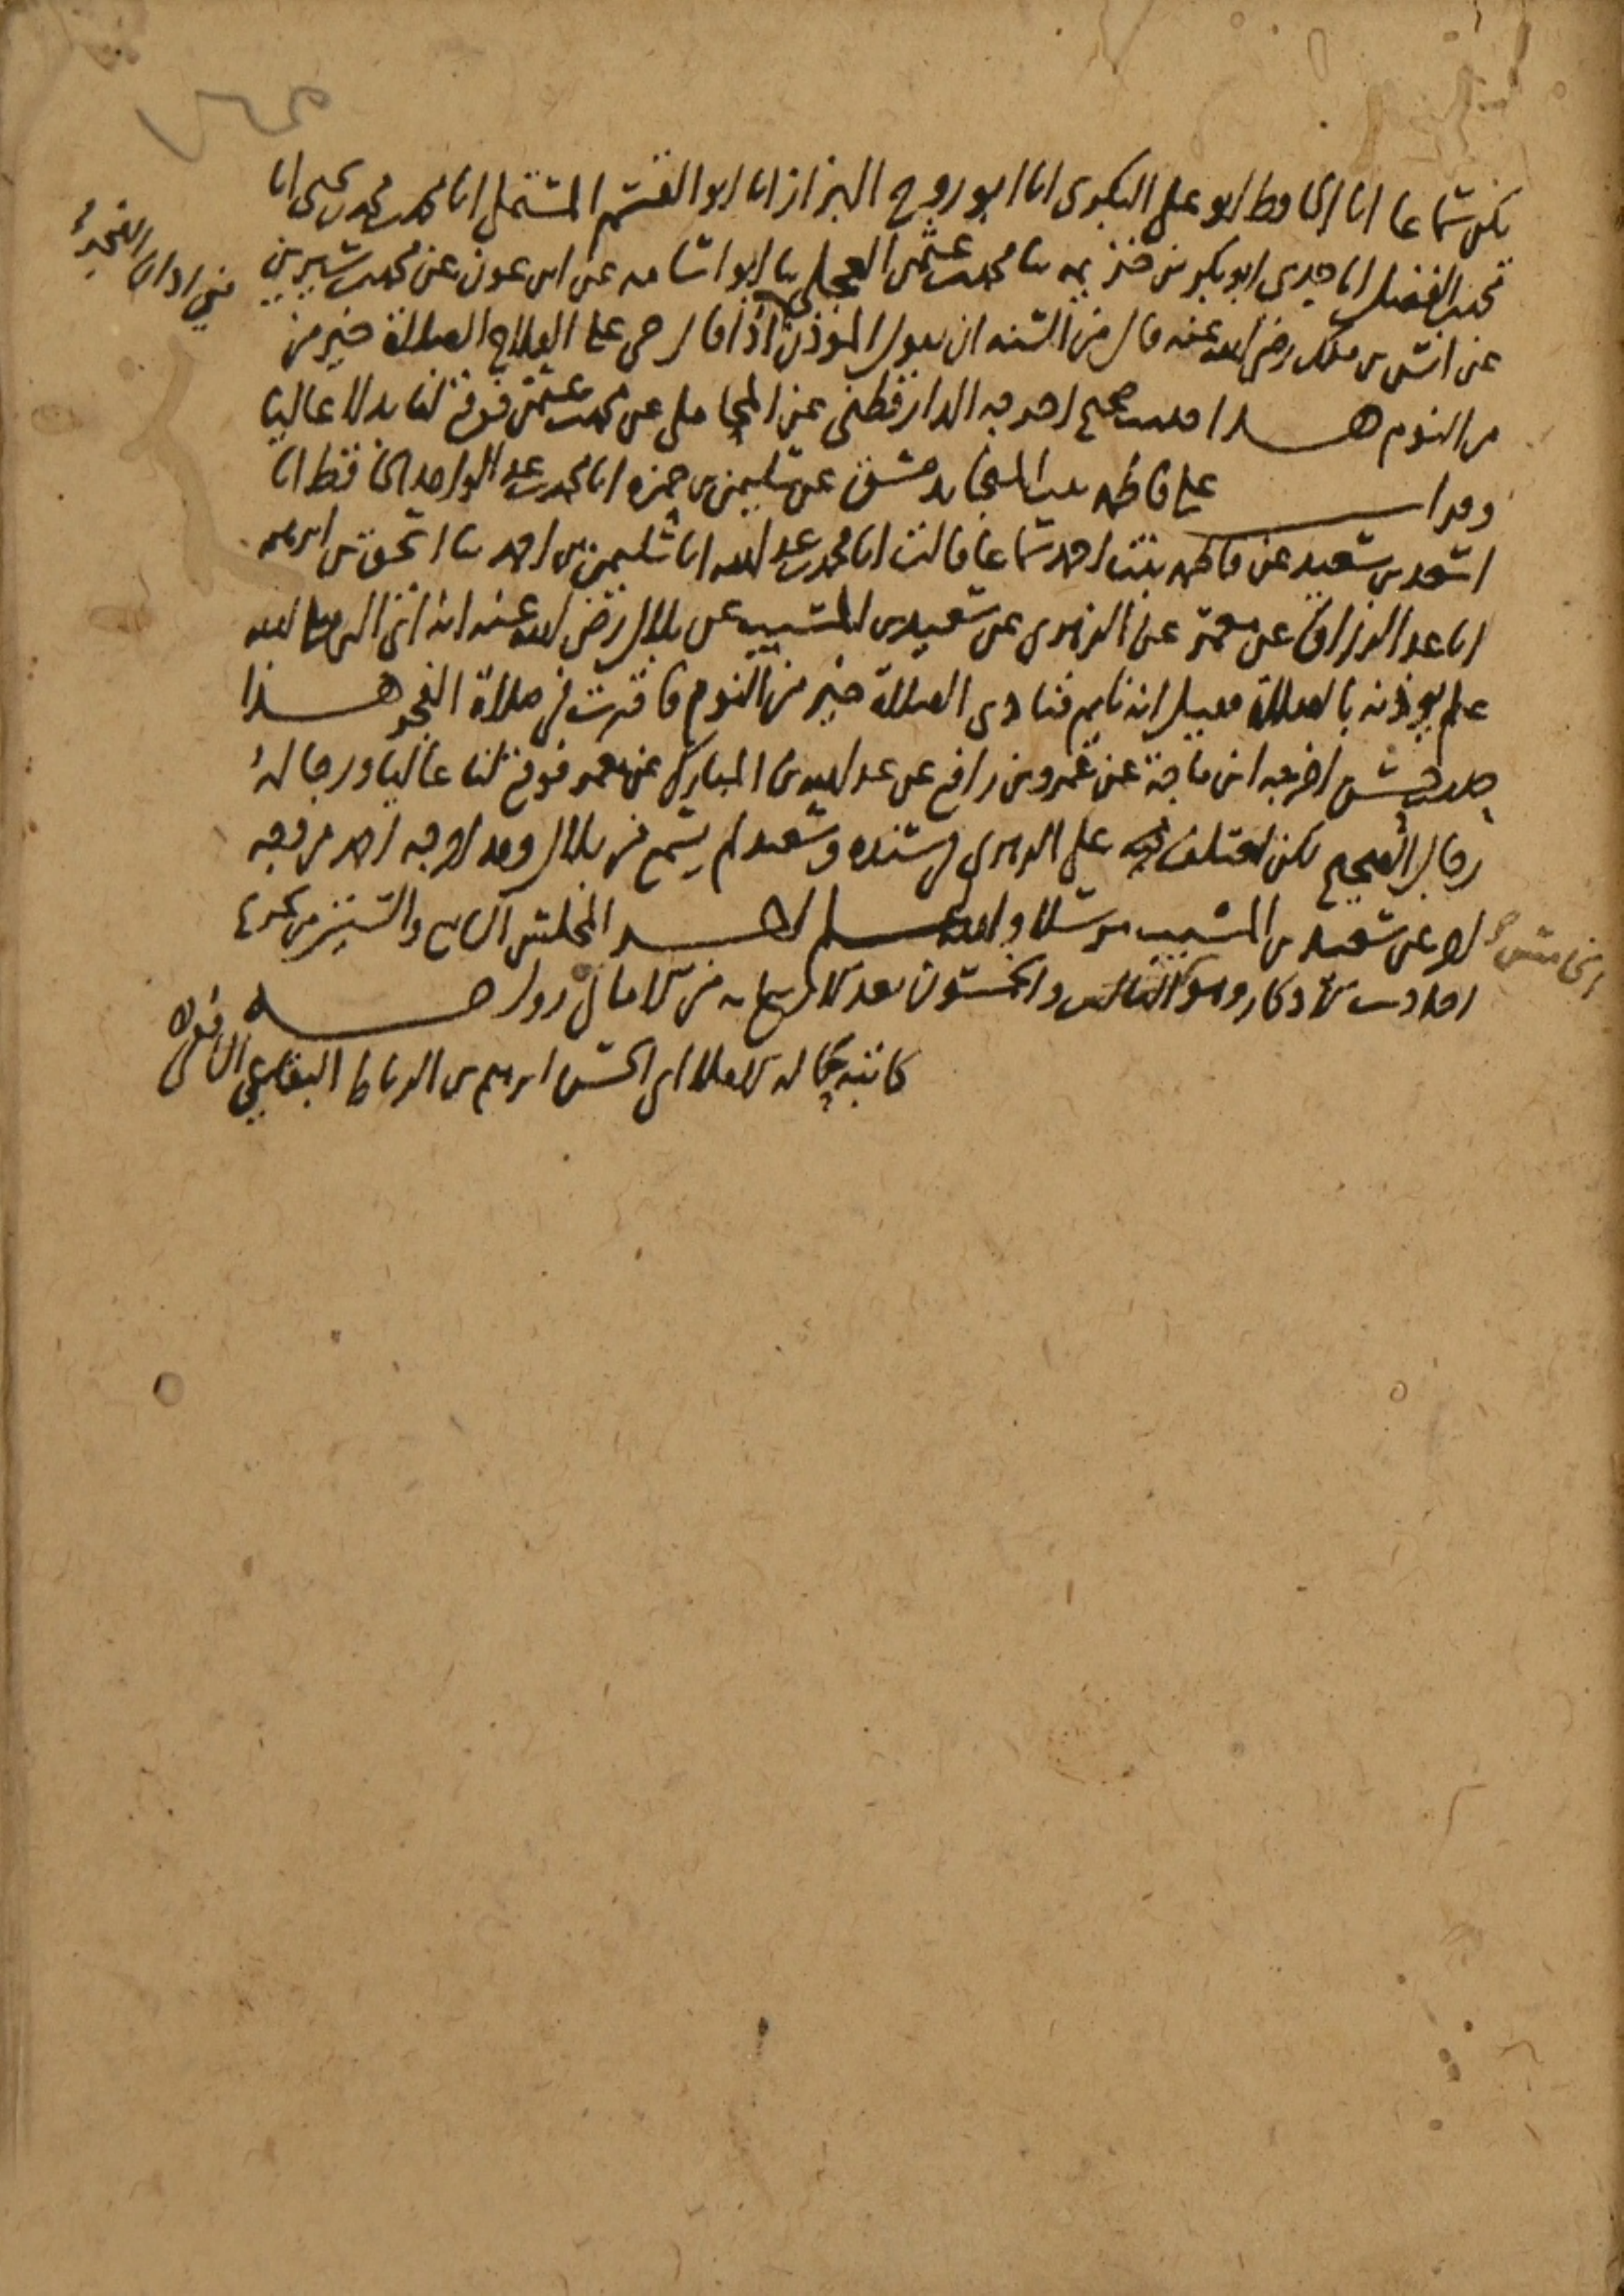 يكن سماعا انا الحافظ ابو علي البكري انا ابو روح البزاز انا ابو القسم المستملي انا محمد بن محمد بن يحيى انا
محمد بن الفضل انا جدي ابو بكر بن خزيمه ثنا محمد بن عثمن العجلي ثنا ابو اسامه عن ابن عون عن محمد بن سيرين
عن انس بن ملك رضي الله عنه قال من السنه ان يقول الموذن اذا قال حي على الفلاح الصلاة خير من
في اذان الفجر
من النوم هذا حديث صحيح اخرجه الدارقطني عن المحاملي عن محمد بن عثمن فوقع لنا بدلا عاليا
وقرات على فاطمه بنت المنجا بدمشق عن سليمن بن حمزه انا محمد بن عبد الواحد الحافظ انا
اسعد بن سعيد عن فاطمه بنت احمد سماعا قالت انا محمد بن عبد الله انا سليمن بن احمد ثنا اسحق بن ابرهيم
انا عبد الرزاق عن معمر عن الزهري عن سعيد بن المسيب عن بلال رضي الله عنه انه اتى النبي صلى الله
عليه يوذنه بالصلاة فقيل انه نايم فنادى الصلاة خير من النوم فاقرت في صلاة الفجر هذا
حديث حسن اخرجه ابن ماجة عن عمرو بن رافع عن عبد الله بن المبارك عن معمر فوقع لنا عاليا ورجاله
رجال الصحيح لكن اختلف فيه على الزهري في سنده وسعيد لم يسمع من بلال وقد اخرجه احمد من وجه
اخر عن سعيد بن المسيب مرسلا والله اعلم اخر المجلس السابع والستين من تخريج
احاديث الاذكار وهو الثالث والخمسون بعد الاربعمايه من الامالي رواية
كاتبه بحاله الاملا ابي الحسن ابرهيم بن الرباط البقاعي الشافعي
الخامس